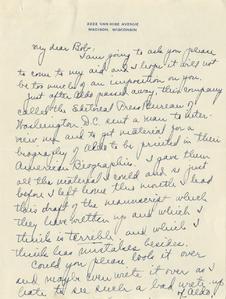 2222 VAN HISE AVENUE
MADISON, WISCONSIN
My dear Bob:
I am going to ask you please
to come to my aid and I hope it will not
be too much of an imposition on you.
Just after Aldo passed away, this company
called the Editorial Press Bureau of
Washington D.C. sent a man to inter-
view me and to get material for a
biography of Aldo to be printed in their
American Biographies. I gave them
all the material I could and so just
before I left home this month I had
this draft of the manuscript which
they have written up and which I
think is terrible and which I
think has mistakes besides.
Could you please look it over
and maybe even write it over as I
hate to see such a bad write-up
of Aldo